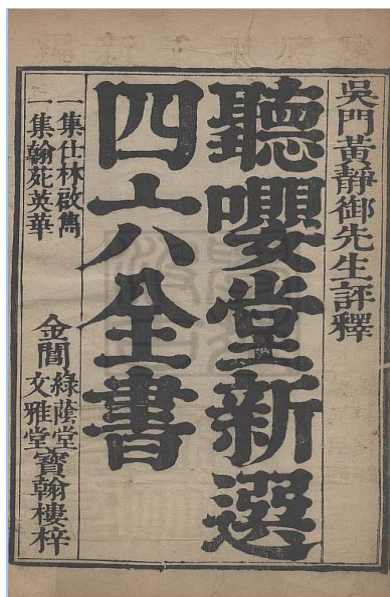 吳門黃靜御先生評釋
聽嚶堂新選
四六全書
一集仕林啟雋
一集翰苑英華
金閶
綠蔭堂
文雅堂
寶翰樓梓